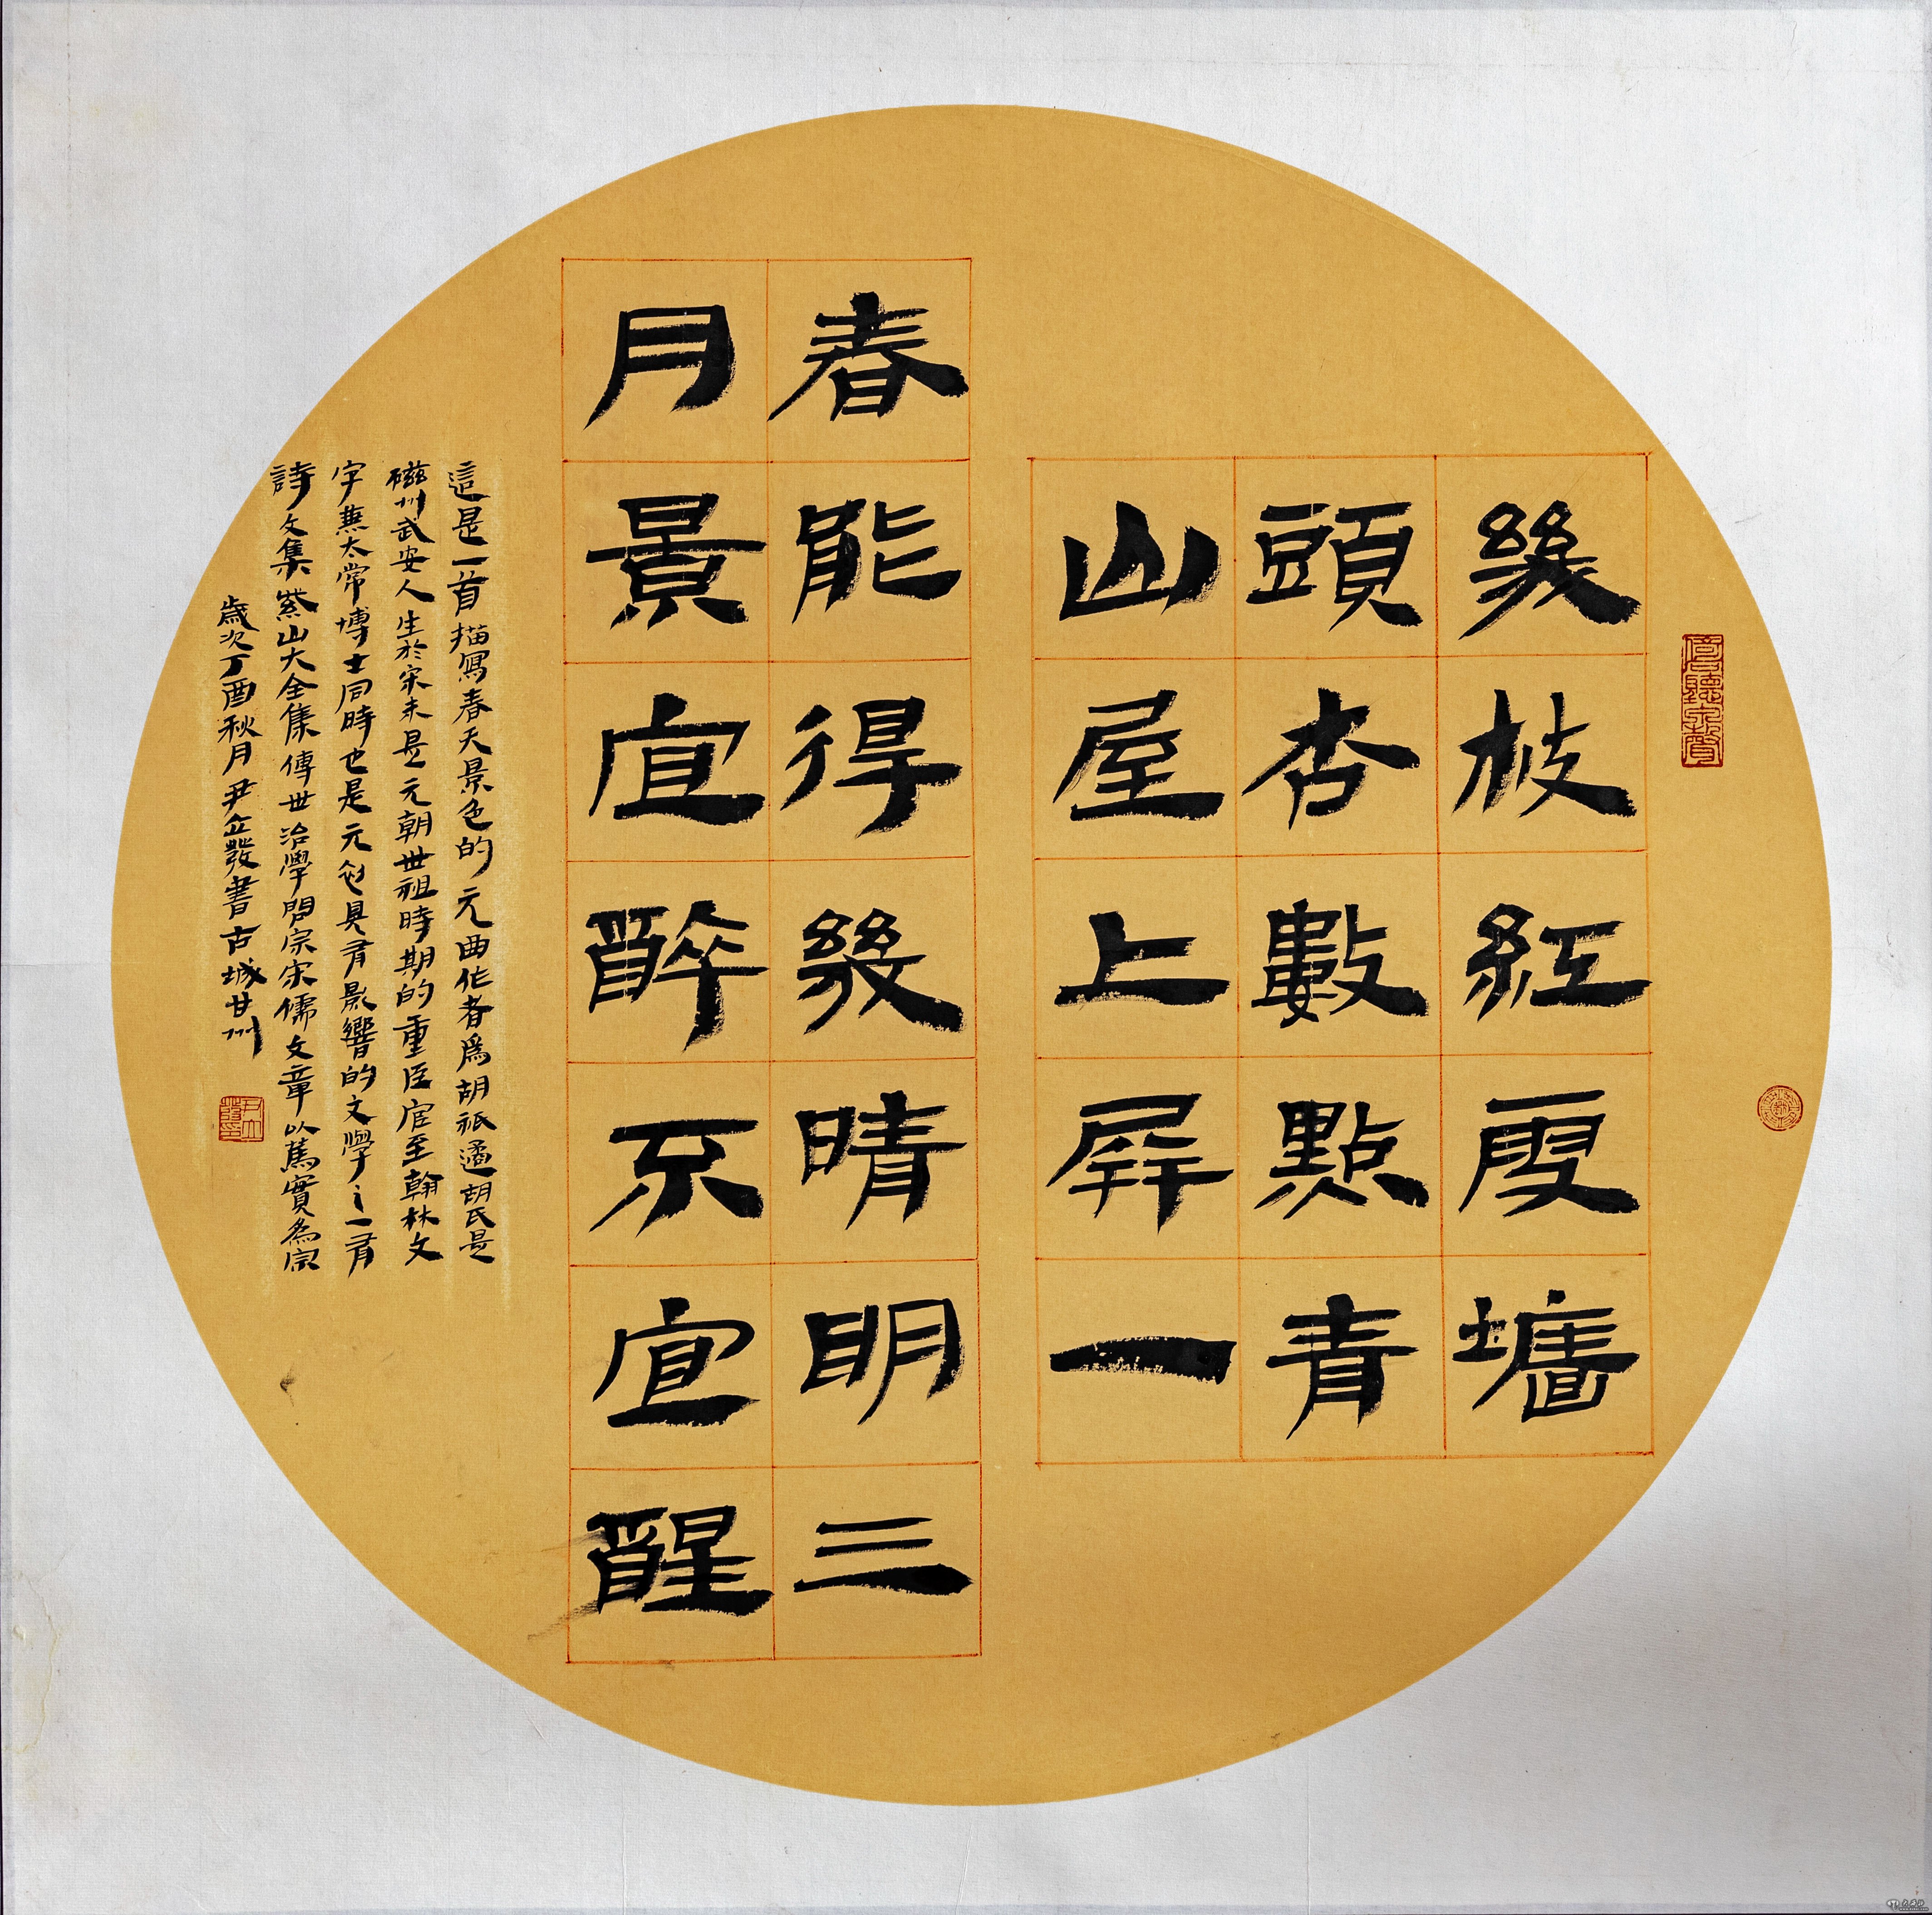 幾枝紅雪墻
頭杏數點青
山屋上屏一
春能得幾晴明三
月景宜醉不宜醒
這是一首描寫春天景色的元曲作者爲胡祗遹胡氏是
磁州武安人生於宋末是元朝世祖時期的重臣官至翰林文
字兼太常博士同時也是元初具有影響的文學之一有
詩文集紫山大全集傳世治學問宗宋儒文章以篤實為宗
歲次丁酉秋月尹立發書古城甘州